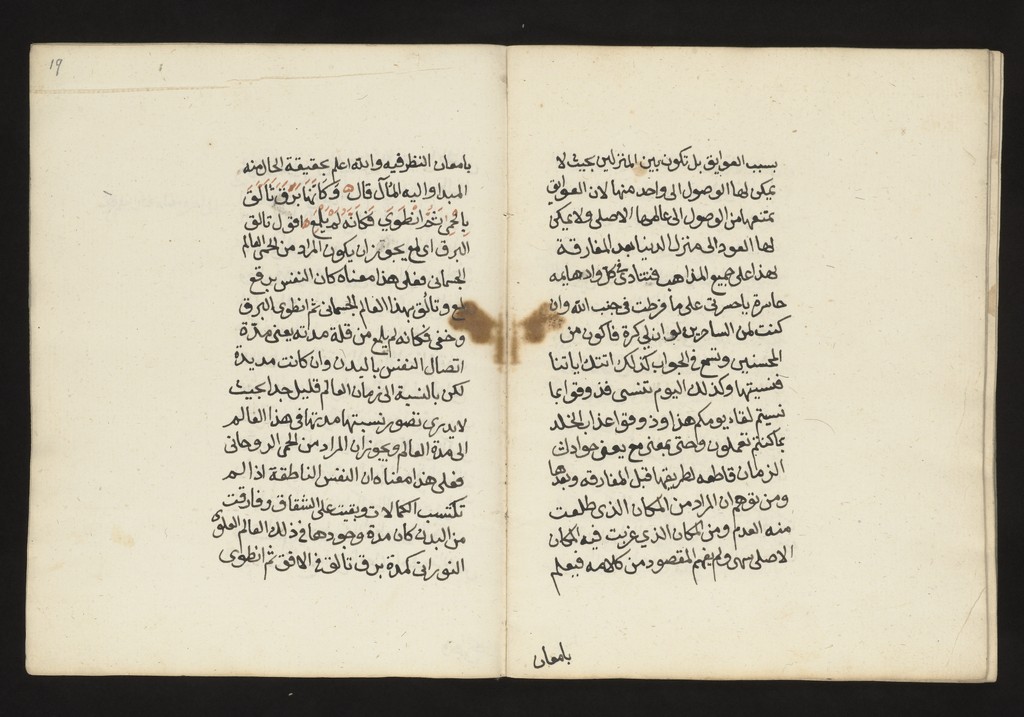 بسبب العوايق بل تكون بين المنزلين بحيث لا
يمكن لها الوصول الى واحد منها لان العوايق
تمنعها من الوصول الى عالمها الاصلى ولا يمكن
لها العود الى منزل الدنيا بعد المفارقة
بهذا على جميع المذاهب فتنادى فى كل واد هايمه
حاسرة ياحسرتى على ما فرطت فى جنب الله وان
كنت لمن الساخرين لو ان لى كرة فاكون من
المحسنين وتسمع فى الجواب كذلك اتتك اياتنا
فنسيتها وكذلك اليوم تنسى فذوقوا بما
نسيتم لقاء يومكم هذا وذوقوا عذاب الخلد
بما كنتم تعملون وحتى بمعنى مع يعنى حوادث
الزمان قاطعه لطريقها قبل المفارقه وبعدها
ومن توهم ان المراد من المكان الذى طلعت
منه العدم ومن المكان الذى غربت فيه المكان
الاصلى سهى ولم يفهم المقصود من كلامه فيعلم
بامعان
19
بامعان النظر فيه والله اعلم بحقيقة الحال منه
المبدا واليه المآل قال وَكَاَنَّهَا بَرْقٌ تَاَلَّقَ
بِالْحِمَى ثُمَّ انْطَوَى فَكَاَنَّهُ لَمْ يَلْمَعِ اقول تالق
البرق اى لمع يجوز ان يكون المراد من الحمى العالم
الجسمانى فعلى هذا معناه كان النفس برق
لمع وتالق بهذا العالم الجسمانى ثم انطوى البرق
وخفى فكانه لم يلمع من قلة مدته يعنى مدة
اتصال النفس بالبدن وان كانت مديدة
لكن بالنسبة الى زمان العالم قليل جدا بحيث
لا يدرى تصور نسبتها مدتها فى هذا العالم
الى مدة العالم ويجوز ان المراد من الحمى الروحانى
فعلى هذا معناه ان النفس الناطقة اذا لم
تكتسب الكمالات وبقيت على الشقاق وفارقت
من البدن كان مدة وجودها فى ذلك العالم العلوى
النورانى كمدة برق تالق فى الافق ثم انطوى